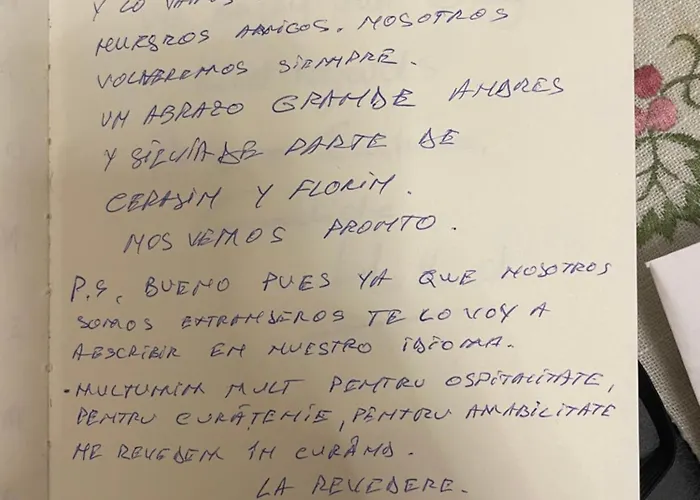 Y LO VAMOS
NUESROS AMIGOS. NOSOTROS
VOLVEREMOS SIEMPRE.
UN ABRAZO GRANDE ANDRES
Y SILVIA DE PARTE DE
CERASIM Y FLORIN.
NOS VEMOS PRONTO.
P.S. BUENO PUES YA QUE NOSOTROS
SOMOS EXTRANSEROS TE LO VOY A
AESCRIBIR EN NUESTRO IDIOMA.
-MULTUMIM MULT PENTRU OSPITALITATE,
PENTRU CURĂTENIE, PENTRU AMABILITATE
NE REVEDEM ÎN CURÂND.
LA REVEDERE.